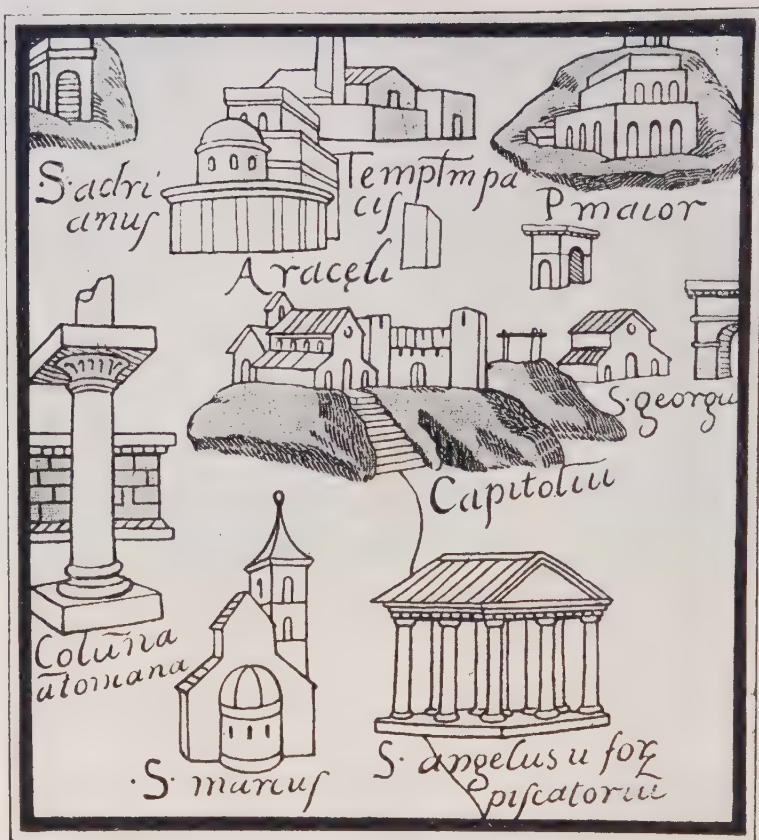 ·S· adri
anuſ
Templm pa
ciſ
P maior
Aracęli
S. georgii
Capitoliū
Colūna
ātoniana
·S· marcuſ
S. angelus ū foꝝ
piſcatoriū